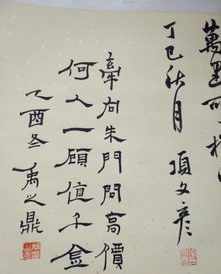 萬里可
丁巳秋月 項文彦
牽向朱門問高價
何人一顧值千金
乙酉冬 禹之鼎